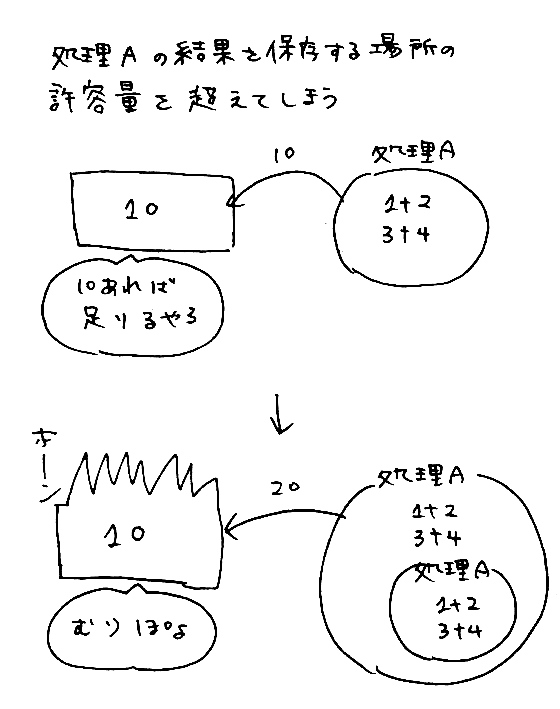 処理Aの結果を保存する場所の
許容量を超えてしまう
10
処理A
10
1+2
3+4
10あれば
足りるやろ
ホーン
20
処理A
1+2
3+4
10
処理A
1+2
3+4
むりぽ